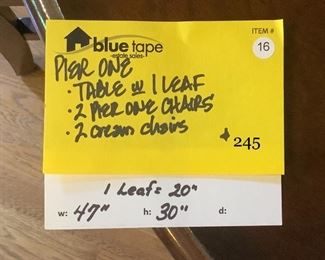 ITEM #
blue tape
-estate sales-
16
PIER ONE
• TABLE w 1 LEAF
• 2 PIER ONE CHAIRS
• 2 cream chairs
$245
1 Leaf = 20"
w: 47" h: 30" d: